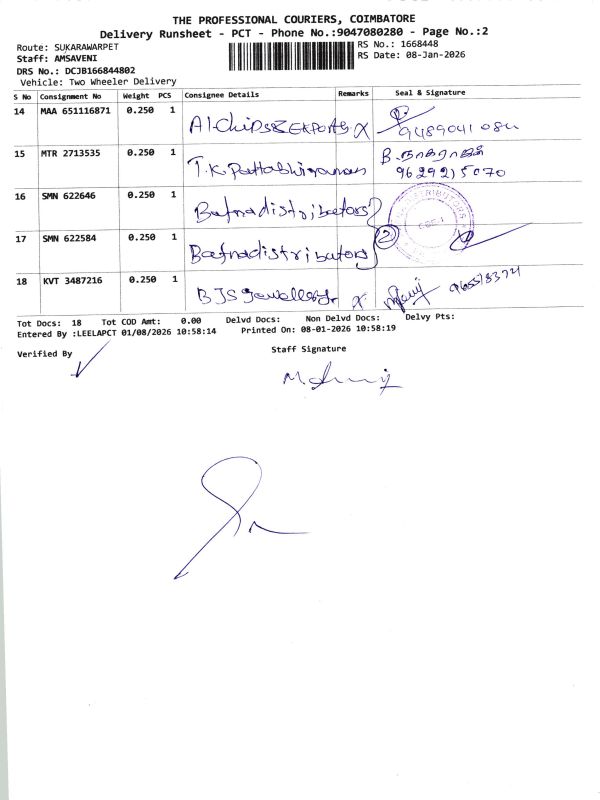 THE PROFESSIONAL COURIERS, COIMBATORE
Delivery Runsheet - PCT - Phone No.:9047080280 - Page No.:2
Route: SUKARAWARPET
RS No.: 1668448
Staff: AMSAVENI
RS Date: 08-Jan-2026
DRS No.: DCJB166844802
Vehicle: Two Wheeler Delivery
S No Consignment No Weight PCS Consignee Details Remarks Seal & Signature
14 MAA 651116871 0.250 1
15 MTR 2713535 0.250 1 T.K. Pattabhiraman B. நாகராஜ்
9629215070
16 SMN 622646 0.250 1 Bafnadistributors
17 SMN 622584 0.250 1 Bafnadistributors 2
18 KVT 3487216 0.250 1 BJS Jewellery X
Tot Docs: 18 Tot COD Amt: 0.00 Delvd Docs: Non Delvd Docs: Delvy Pts:
Entered By :LEELAPCT 01/08/2026 10:58:14 Printed On: 08-01-2026 10:58:19
Verified By
Staff Signature